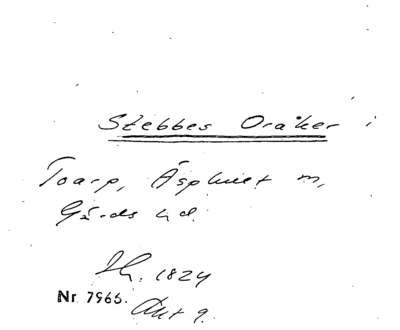 Stebbes Oråker i
Toarp, Äsphult sn,
Gärds hd.
Sk. 1824
Nr 7966. Akt 9.